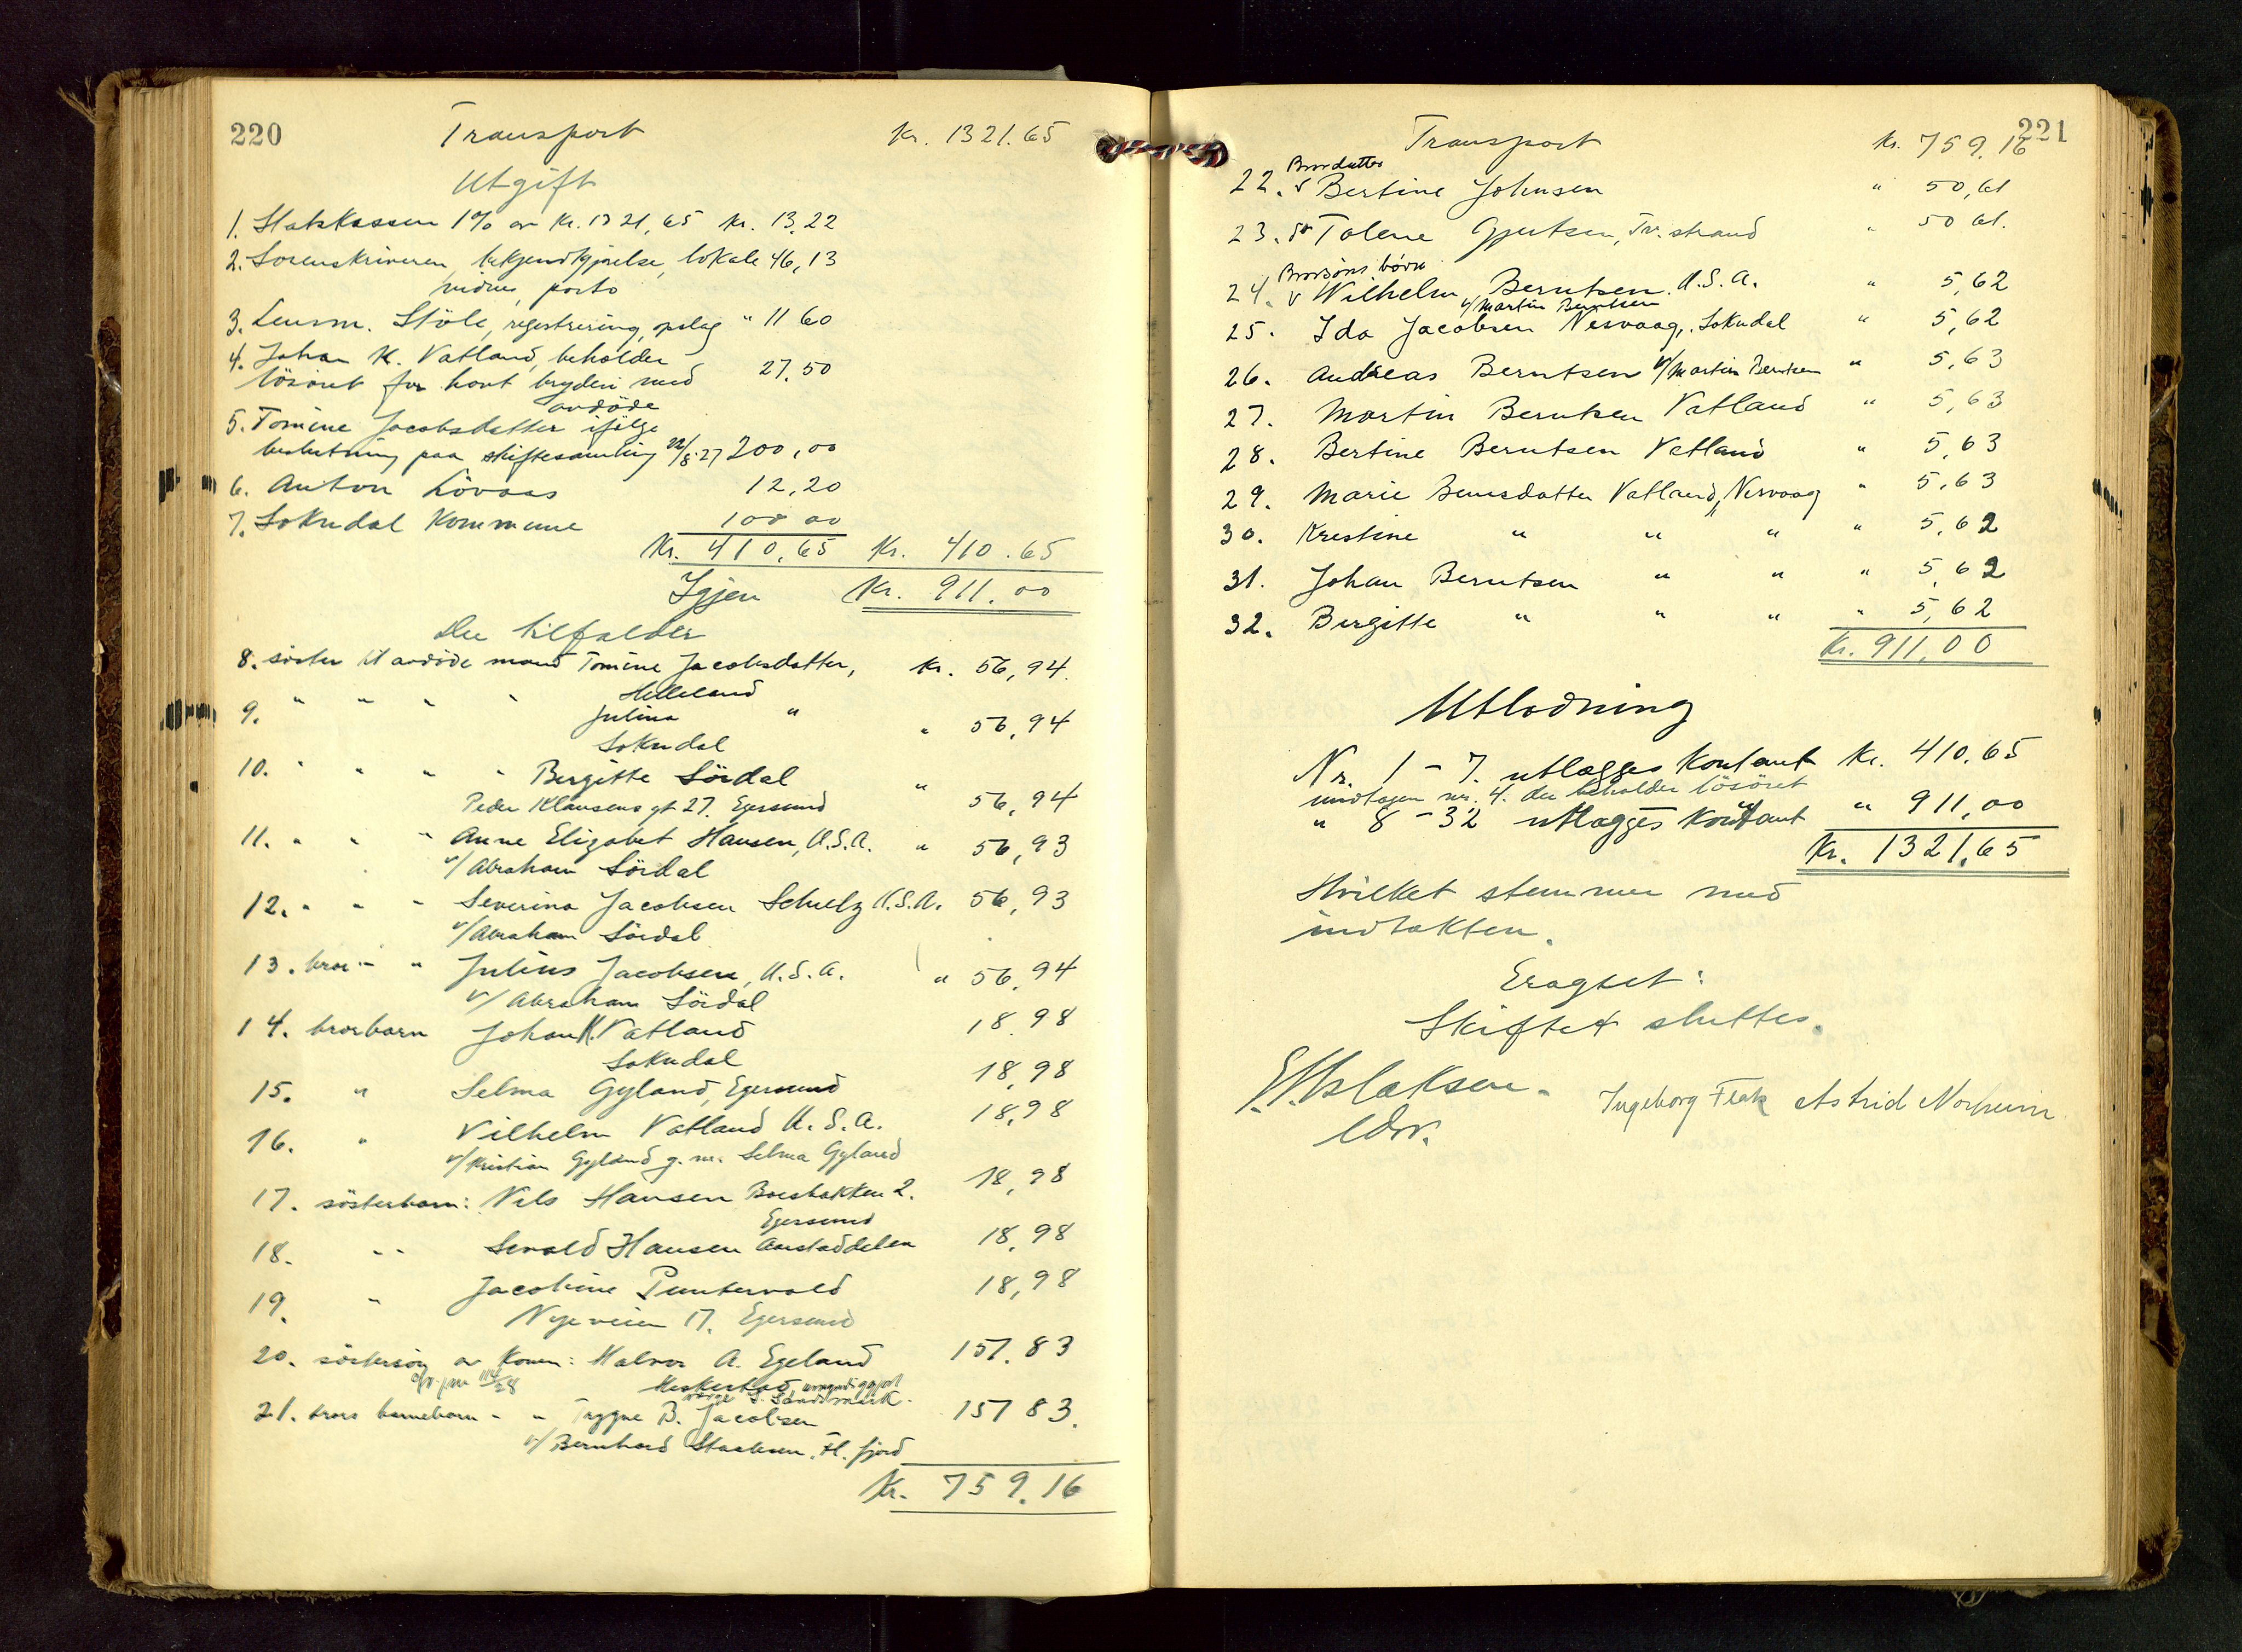 220
Transport Kr. 1321.65
Utgift
1. Statskassen 1% av Kr. 1321,65 Kr. 13.22
2. Sorenskriveren, bekjendtgjørelse, lokale 46,13
vidne, porto
3. Lensm. Stöle, registrering, opslag " 11 60
4. Johan K. Vatland, beholder
lösöret for havt bryderi med 27.50
avdöde
5. Tomine Jacobsdatter ifölge
beslutning paa skiftesamling 22/8-27 200,00
6. Anton Lövaas 12,20
7. Sokndal Kommune 100 00
Kr. 410,65 Kr. 410.65
Igjen Kr. 911.00
Der tilfalder
8. söster til avdöde mand Tomine Jacobsdatter, Kr. 56,94.
Helleland
9. " " " " Julina " " 56,94
Sokndal
10. " " " " Bergitte Sördal "
Peder Klausens gt 27. Egersund 56,94
11. " " " Anne Elizabet Hansen, U.S.A. " 56,93
v/ Abraham Sördal
12. " " " Severina Jacobsen Schulz U.S.A. 56,93
v/ Abraham Sördal
13. bror " " Julius Jacobsen, U.S.A. " 56,94
v/ Abraham Sördal
14. brorbarn Johan K. Vatland 18.98
Sokndal
15. " Selma Gyland, Egersund 18,98
16. " Vilhelm Vatland U.S.A. 18,98
v/ Kristian Gyland g.m. Selma Gyland
17. søsterbarn: Nils Hansen 2. 18,98
Egersund
18. " " Sevald Hansen 18,98
19. " Jacobine Puntervold 18,98
Nyeveien 17. Egersund
20. søstersön av Konen: Halvor A. Egeland 151.83
umyndiggjort
21. brors barnebarn " " Trygve B. Jacobsen 151 83.
v/ Bernhard Fl. fjord
Kr. 759.16
221
Transport Kr. 759.16
Brordatter
22. v Bertine Johnsen " 50,61
23. do Tolene Gjertsen, Tv. strand " 50 61.
Brorsöns börn
24. v Wilhelm Berntsen U.S.A. " 5,62
v/ Martin Berntsen
25. Ida Jacobsen Nesvaag, Sokndal " 5,62
26. Andreas Berntsen v/ Martin Berntsen " 5,63
27. Martin Berntsen Vatland " 5,63
28. Bertine Berntsen Vatland " 5,63
29. Marie Berntsdatter Vatland, Nesvaag " 5,63
30. Krestine " " " " 5,62
31. Johan Berntsen " " " 5,62
32. Bergitte " " " " 5,62
Kr. 911,00
Utlodning
Nr. 1 - 7. utlægges kontant Kr. 410.65
undtagen nr. 4. der beholder lösöret
" 8 - 32 utlægges kontant " 911,00
Kr. 1321.65
Hvilket stemmer med
indtækten.
Eragtet:
Skiftet sluttes.
Aslaksen. Ingeborg Flak Astrid Norheim